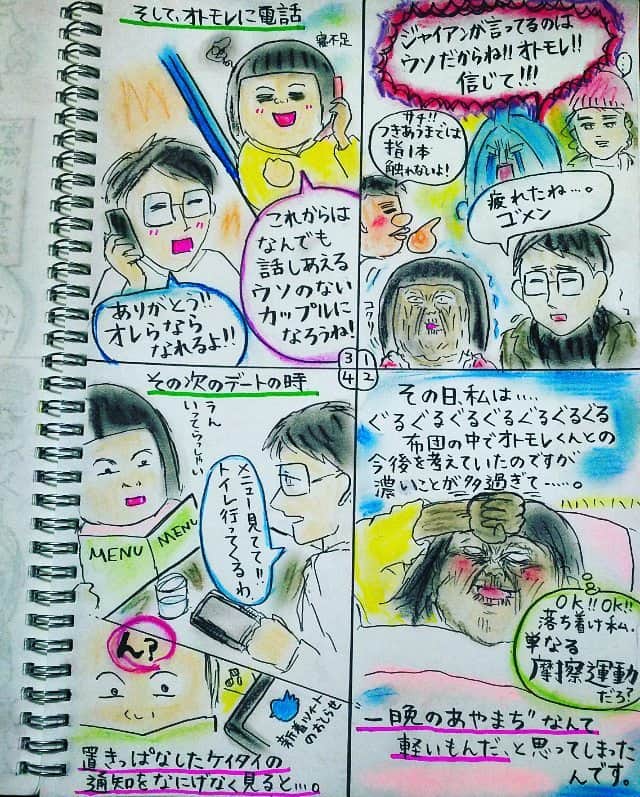 ジャイアンが言ってるのは
ウソだからね!!オトモレ!!
信じて!!!
サチ!!
つきあうまでは
指1本
触れないよ!
疲れたね…。
ゴメン
コクリ…
1
2
3
4
その日、私は‥‥
ぐるぐるぐるぐるぐるぐるぐる
布団の中でオトモレくんとの
今後を考えていたのですが
濃いことが多過ぎて‥‥。
OK!!OK!!
落ち着け私、
単なる
摩擦運動
だろ?
"一晩のあやまち"なんて
軽いもんだ、と思ってしまった
んです。
そして、オトモレに電話
寝不足
これからは
なんでも
話しあえる
ウソのない
カップルに
なろうね!
ありがとう!!
オレらなら
なれるよ!!
その次のデートの時
うん
いってらっしゃい
メニュー見てて!!
トイレ行ってくるわ
MENU
MENU
ん?
新着ツイート
のおしらせ
置きっぱなしたケイタイの
通知をなにげなく見ると…。